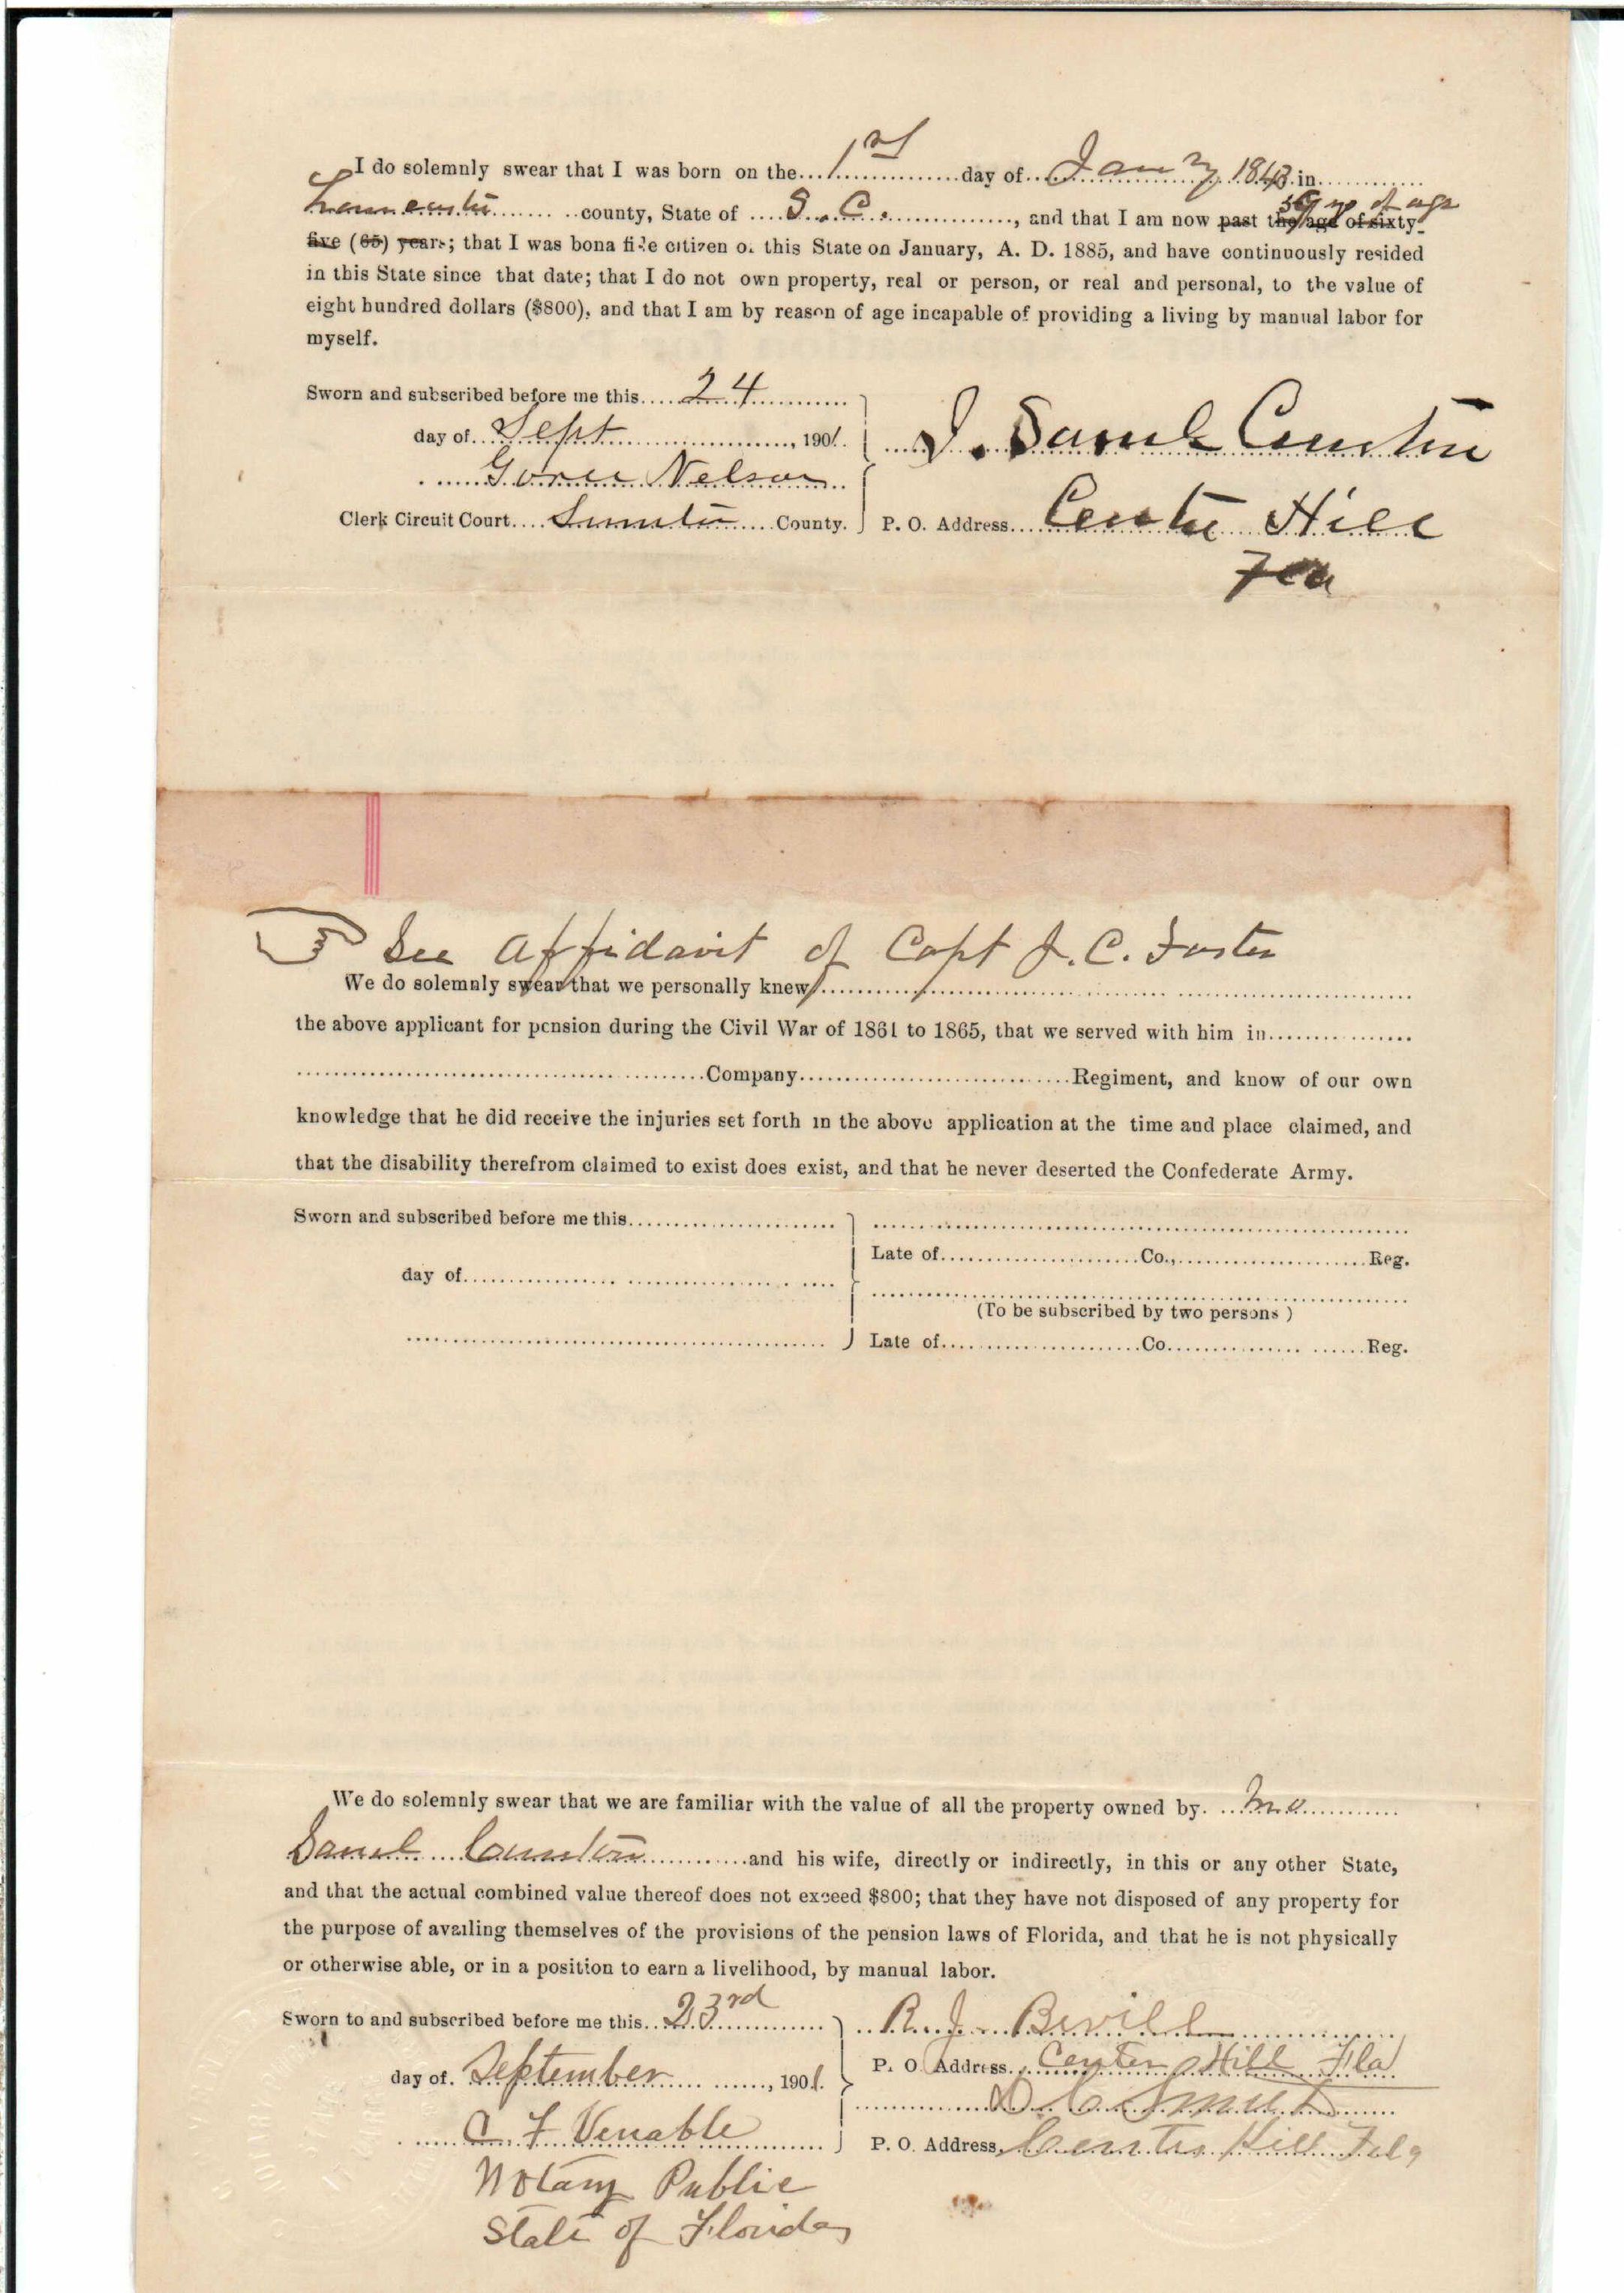 I do solemnly swear that I was born on the 1st day of Jany 1843 in
Lancaster county, State of S. C., and that I am now past the age of sixty- 59 yrs of age
five (65) years; that I was bona fide citizen of this State on January, A. D. 1885, and have continuously resided
in this State since that date; that I do not own property, real or person, or real and personal, to the value of
eight hundred dollars ($800), and that I am by reason of age incapable of providing a living by manual labor for
myself.
Sworn and subscribed before me this 24
day of Sept, 1901.
J. Saml
Nelson
Clerk Circuit Court Sumter County.
P. O. Address Center Hill
Fla
See Affidavit of Capt J. C. Foster
We do solemnly swear that we personally knew
the above applicant for pension during the Civil War of 1861 to 1865, that we served with him in
Company Regiment, and know of our own
knowledge that he did receive the injuries set forth in the above application at the time and place claimed, and
that the disability therefrom claimed to exist does exist, and that he never deserted the Confederate Army.
Sworn and subscribed before me this
Late of Co., Reg.
day of
(To be subscribed by two persons )
Late of Co Reg.
We do solemnly swear that we are familiar with the value of all the property owned by
Saml and his wife, directly or indirectly, in this or any other State,
and that the actual combined value thereof does not exceed $800; that they have not disposed of any property for
the purpose of availing themselves of the provisions of the pension laws of Florida, and that he is not physically
or otherwise able, or in a position to earn a livelihood, by manual labor.
Sworn to and subscribed before me this 23rd
R. J. Bevill
day of September, 1901.
P. O. Address Center Hill Fla
C. F. Venable
P. O. Address, Center Hill Fla
Notary Public
State of Florida